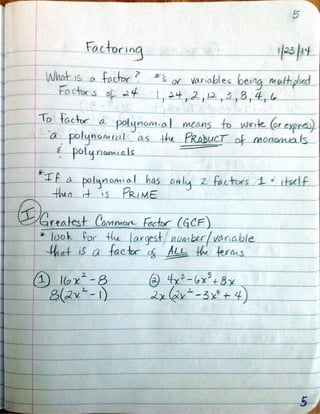 5
Factoring 1/23/14
What is a factor? #'s or variables being multiplied
Factors of 24 1, 24, 2, 12, 3, 8, 4, 6
To factor a polynomial means to write (or express)
a polynomial as the PRODUCT of monomials
& polynomials
*If a polynomial has only 2 factors 1 & itself
then it is PRIME
I Greatest Common Factor (GCF)
* look for the largest number/variable
that is a factor of ALL the terms
① 16x² - 8 ② 4x² - 6x⁵ + 8x
8(2x² - 1) 2x(2x² - 3x⁴ + 4)
5